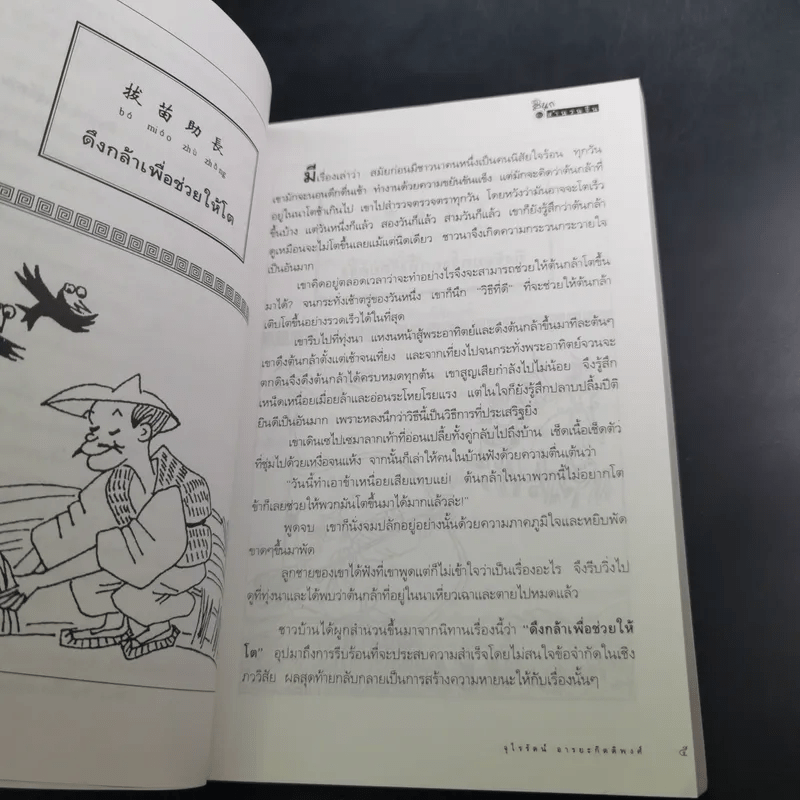 拔苗助長
bá miáo zhù zhǎng
ดึงกล้าเพื่อช่วยให้โต
มีเรื่องเล่าว่า สมัยก่อนมีชาวนาคนหนึ่งเป็นคนนิสัยใจร้อน ทุกวัน
เขามักจะนอนดึกตื่นเช้า ทำงานด้วยความขยันขันแข็ง แต่มักจะคิดว่าต้นกล้าที่
อยู่ในนาโตช้าเกินไป เขาไปสำรวจตรวจตราทุกวัน โดยหวังว่ามันอาจจะโตเร็ว
ขึ้นบ้าง แต่วันหนึ่งก็แล้ว สองวันก็แล้ว สามวันก็แล้ว เขาก็ยังรู้สึกว่าต้นกล้า
ดูเหมือนจะไม่โตขึ้นเลยแม้แต่นิดเดียว ชาวนาจึงเกิดความกระวนกระวายใจ
เป็นอันมาก
เขาคิดอยู่ตลอดเวลาว่าจะทำอย่างไรจึงจะสามารถช่วยให้ต้นกล้าโตขึ้น
มาได้? จนกระทั่งเช้าตรู่ของวันหนึ่ง เขาก็นึก "วิธีที่ดี" ที่จะช่วยให้ต้นกล้า
เติบโตขึ้นอย่างรวดเร็วได้ในที่สุด
เขารีบไปที่ทุ่งนา แหงนหน้าสู้พระอาทิตย์และดึงต้นกล้าขึ้นมาทีละต้นๆ
เขาดึงต้นกล้าตั้งแต่เช้าจนเที่ยง และจากเที่ยงไปจนกระทั่งพระอาทิตย์จวนจะ
ตกดินจึงดึงต้นกล้าได้ครบหมดทุกต้น เขาสูญเสียกำลังไปไม่น้อย จึงรู้สึก
เหน็ดเหนื่อยเมื่อยล้าและอ่อนระโหยโรยแรง แต่ในใจก็ยังรู้สึกปลาบปลื้มปิติ
ยินดีเป็นอันมาก เพราะหลงนึกว่าวิธีนี้เป็นวิธีการที่ประเสริฐยิ่ง
เขาเดินเซไปเซมาลากเท้าที่อ่อนเปลี้ยทั้งคู่กลับไปถึงบ้าน เช็ดเนื้อเช็ดตัว
ที่ชุ่มไปด้วยเหงื่อจนแห้ง จากนั้นก็เล่าให้คนในบ้านฟังด้วยความตื่นเต้นว่า
"วันนี้ทำเอาข้าเหนื่อยเสียแทบแย่! ต้นกล้าในนาพวกนี้ไม่อยากโต
ข้าก็เลยช่วยให้พวกมันโตขึ้นมาได้มากแล้วล่ะ!"
พูดจบ เขาก็นั่งจมปลักอยู่อย่างนั้นด้วยความภาคภูมิใจและหยิบพัด
ขาดๆขึ้นมาพัด
ลูกชายของเขาได้ฟังที่เขาพูดแต่ก็ไม่เข้าใจว่าเป็นเรื่องอะไร จึงรีบวิ่งไป
ดูที่ทุ่งนาและได้พบว่าต้นกล้าที่อยู่ในนาเหี่ยวเฉาและตายไปหมดแล้ว
ชาวบ้านได้ผูกสำนวนขึ้นมาจากนิทานเรื่องนี้ว่า "ดึงกล้าเพื่อช่วยให้
โต" อุปมาถึงการรีบร้อนที่จะประสบความสำเร็จโดยไม่สนใจข้อจำกัดในเชิง
ภววิสัย ผลสุดท้ายกลับกลายเป็นการสร้างความหายนะให้กับเรื่องนั้นๆ
อารยะกิตติพงศ์ ๕